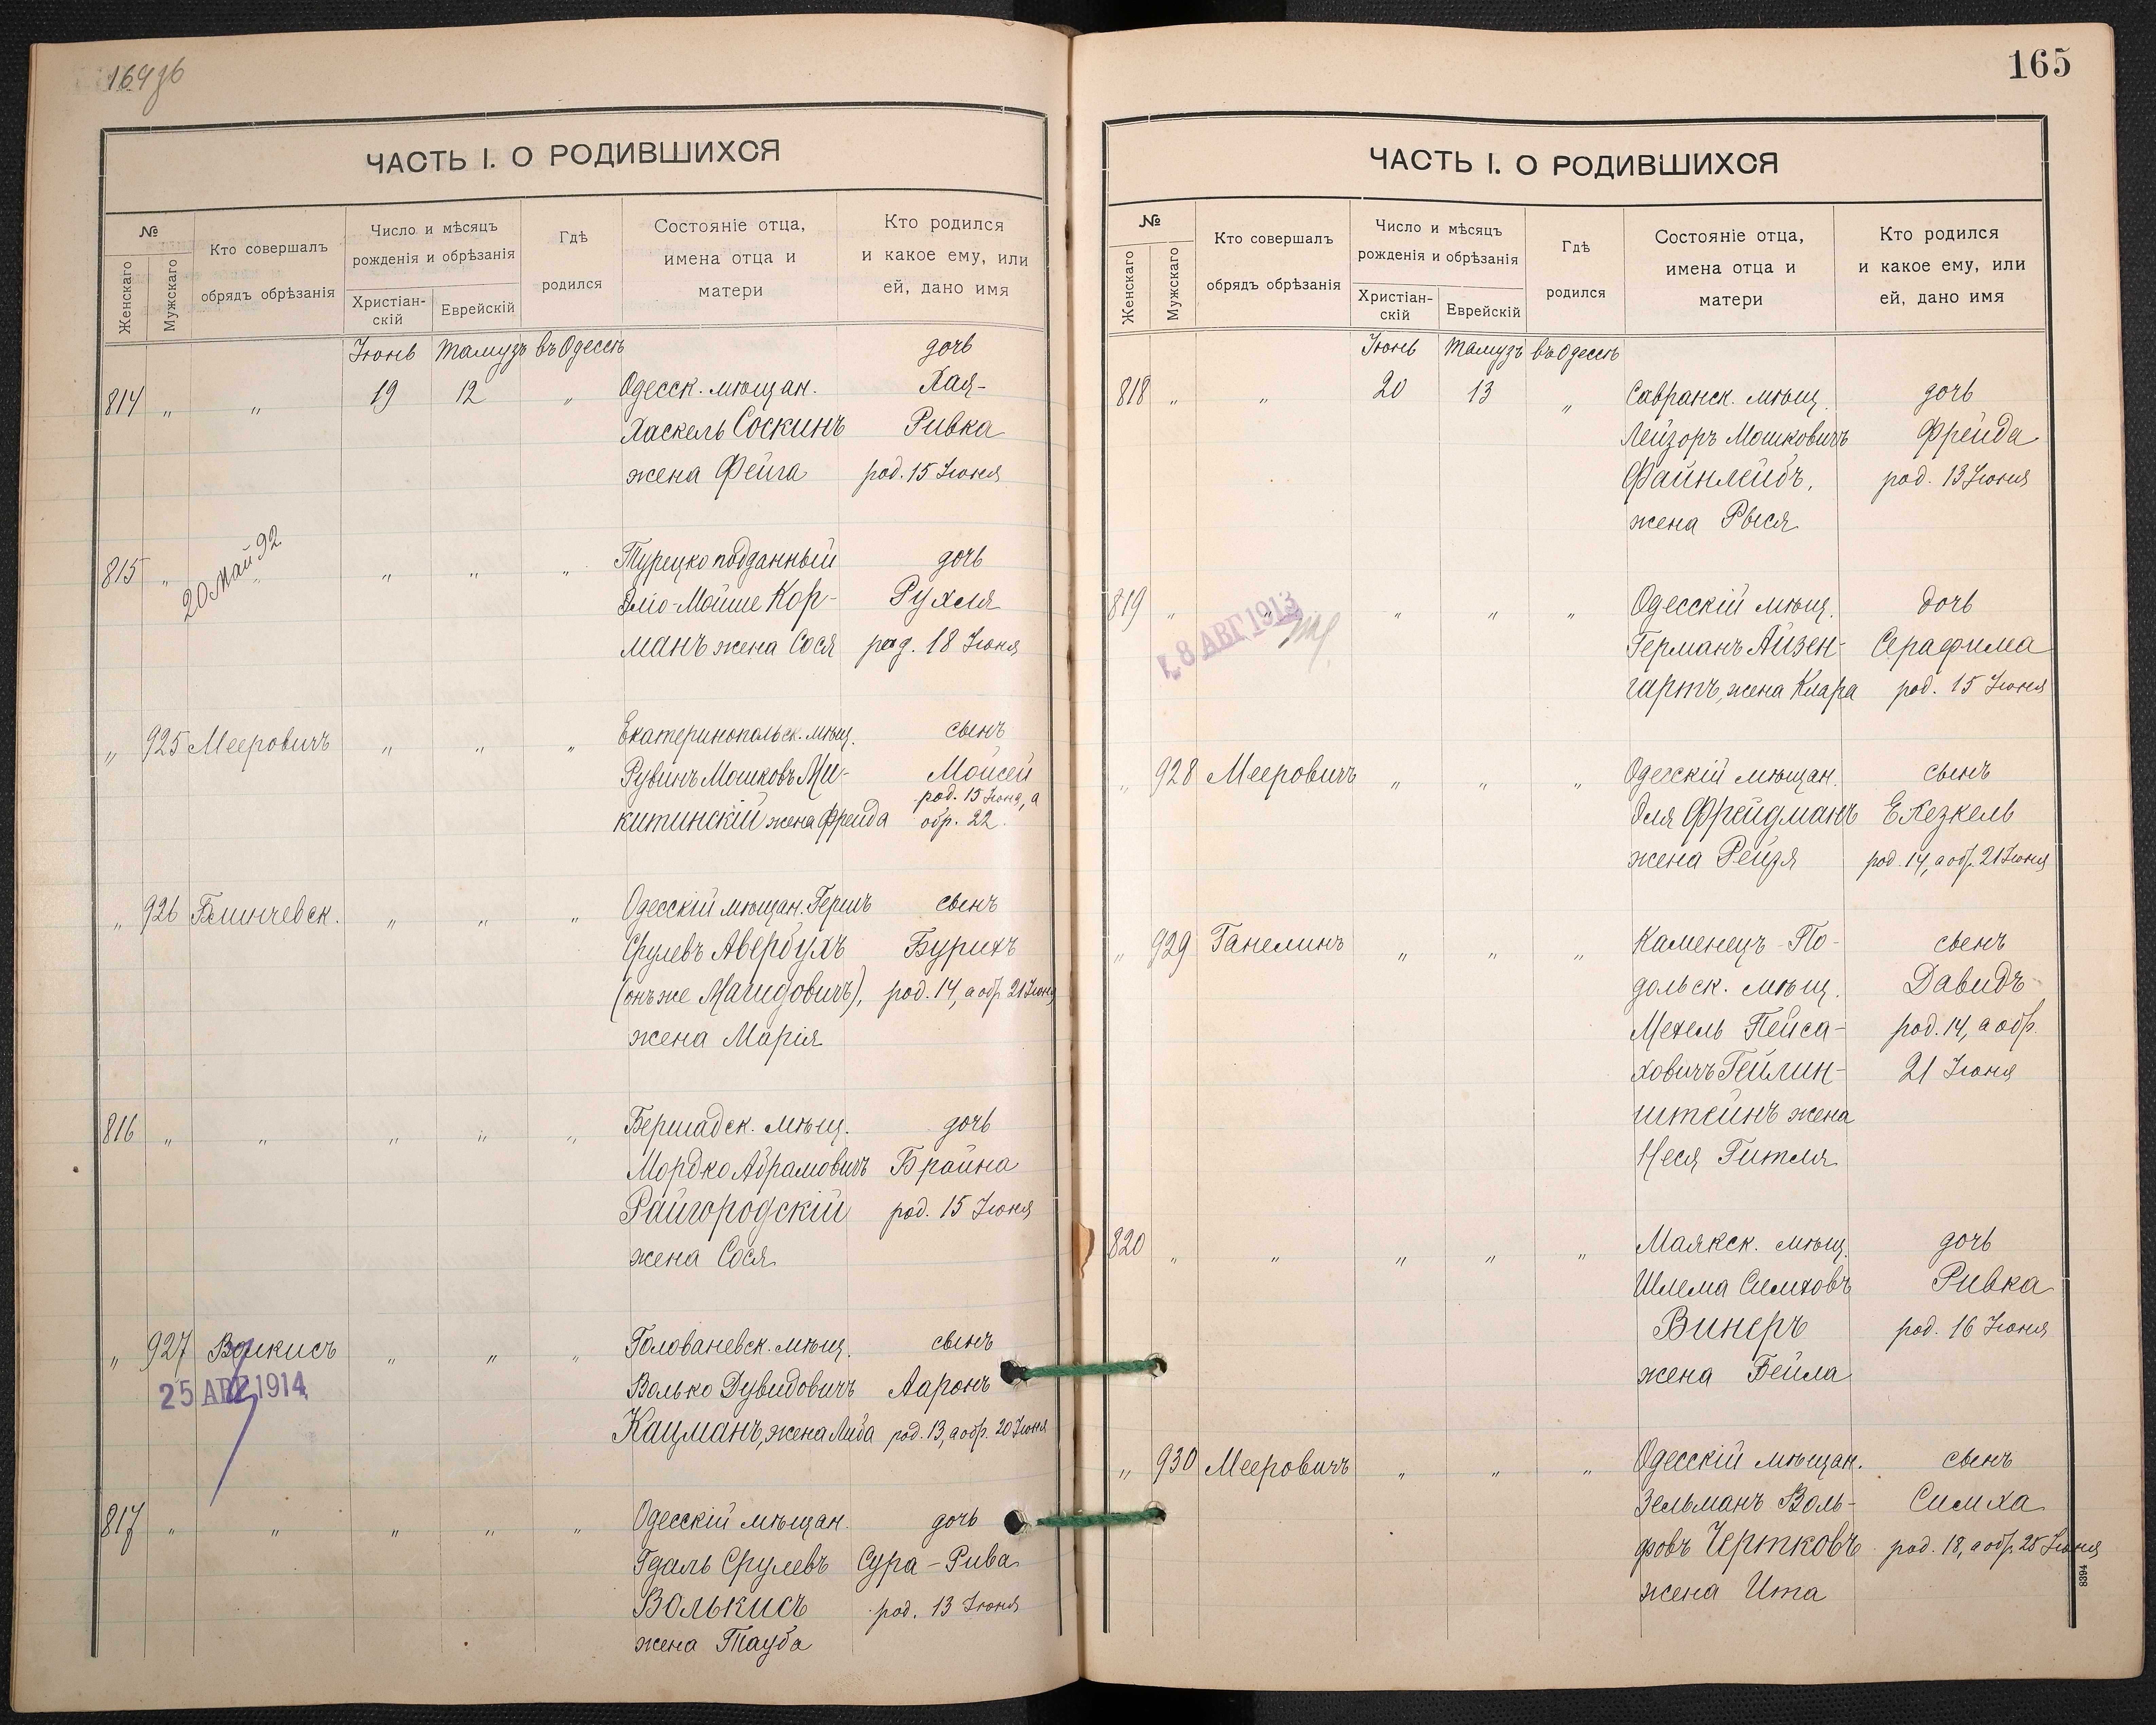 164 об
ЧАСТЬ I. О РОДИВШИХСЯ
№
Женскаго
Мужскаго
Кто совершалъ
обрядъ обрѣзанія
Число и мѣсяцъ
рожденія и обрѣзанія
Христіан-
скій
Еврейскій
Гдѣ
родился
Состояніе отца,
имена отца и
матери
Кто родился
и какое ему, или
ей, дано имя
Іюнь Тамузъ въ Одессѣ дочь
814 " " 19 12 " Одесск. мѣщан. Хая-
Хаскель Соскинъ Ривка
жена Фейга род. 15 Іюня
20 май 92
815 " " " " " Турецко подданный дочь
Эліо-Мойше Кор- Рухля
манъ жена Сося род. 18 Іюня
" 925 Мееровичъ " " " Екатеринопольск. мѣщ. сынъ
Рувинъ Мошковъ Ми- Мойсей
род. 15 Іюня, а
китинскій жена Фрейда обр. 22.
" 926 Блинчевск. " " " Одесскій мѣщан. Гершъ сынъ
Срулевъ Авербухъ Бурихъ
(онъ же Магидовичъ), род. 14, а обр. 21 Іюня
жена Марія
816 " " " " " Бершадск. мѣщ. дочь
Мордко Абрамовичъ Брайна
Райгородскій род. 15 Іюня
жена Сося
" 927 Волкисъ " " " Голованевск. мѣщ. сынъ
25 АВГ 1914
Волько Дувидовичъ Ааронъ
Кацманъ, жена Либа род. 13, а обр. 20 Іюня
817 " " " " " Одесскій мѣщан. дочь
Гдаль Срулевъ Сура-Рива
Волькисъ род. 13 Іюня
жена Тауба
165
ЧАСТЬ I. О РОДИВШИХСЯ
№
Женскаго
Мужскаго
Кто совершалъ
обрядъ обрѣзанія
Число и мѣсяцъ
рожденія и обрѣзанія
Христіан-
скій
Еврейскій
Гдѣ
родился
Состояніе отца,
имена отца и
матери
Кто родился
и какое ему, или
ей, дано имя
Іюнь Тамузъ въ Одессѣ
818 " " 20 13 " Савранск. мѣщ. дочь
Лейзоръ Мошковичъ Фрейда
Файнлейбъ, род. 13 Іюня
жена Рыся
819 " " " " " Одесскій мѣщ. дочь
8 АВГ 1913
Германъ Айзен- Серафима
гартъ, жена Клара род. 15 Іюня
" 928 Мееровичъ " " " Одесскій мѣщан. сынъ
Эля Фрейдманъ Ехезкель
жена Рейзя род. 14, а обр. 21 Іюня
" 929 Ганелинъ " " " Каменецъ-По- сынъ
дольск. мѣщ. Давидъ
Мехель Пейса- род. 14, а обр.
ховичъ Гейлин- 21 Іюня
штейнъ жена
Неся Гитля
820 " " " " " Маякск. мѣщ. дочь
Шлема Симховъ Ривка
Винеръ род. 16 Іюня
жена Бейла
" 930 Мееровичъ " " " Одесскій мѣщан. сынъ
Зельманъ Воль- Симха
фовъ Чертковъ род. 18, а обр. 25 Іюня
жена Ита
8394